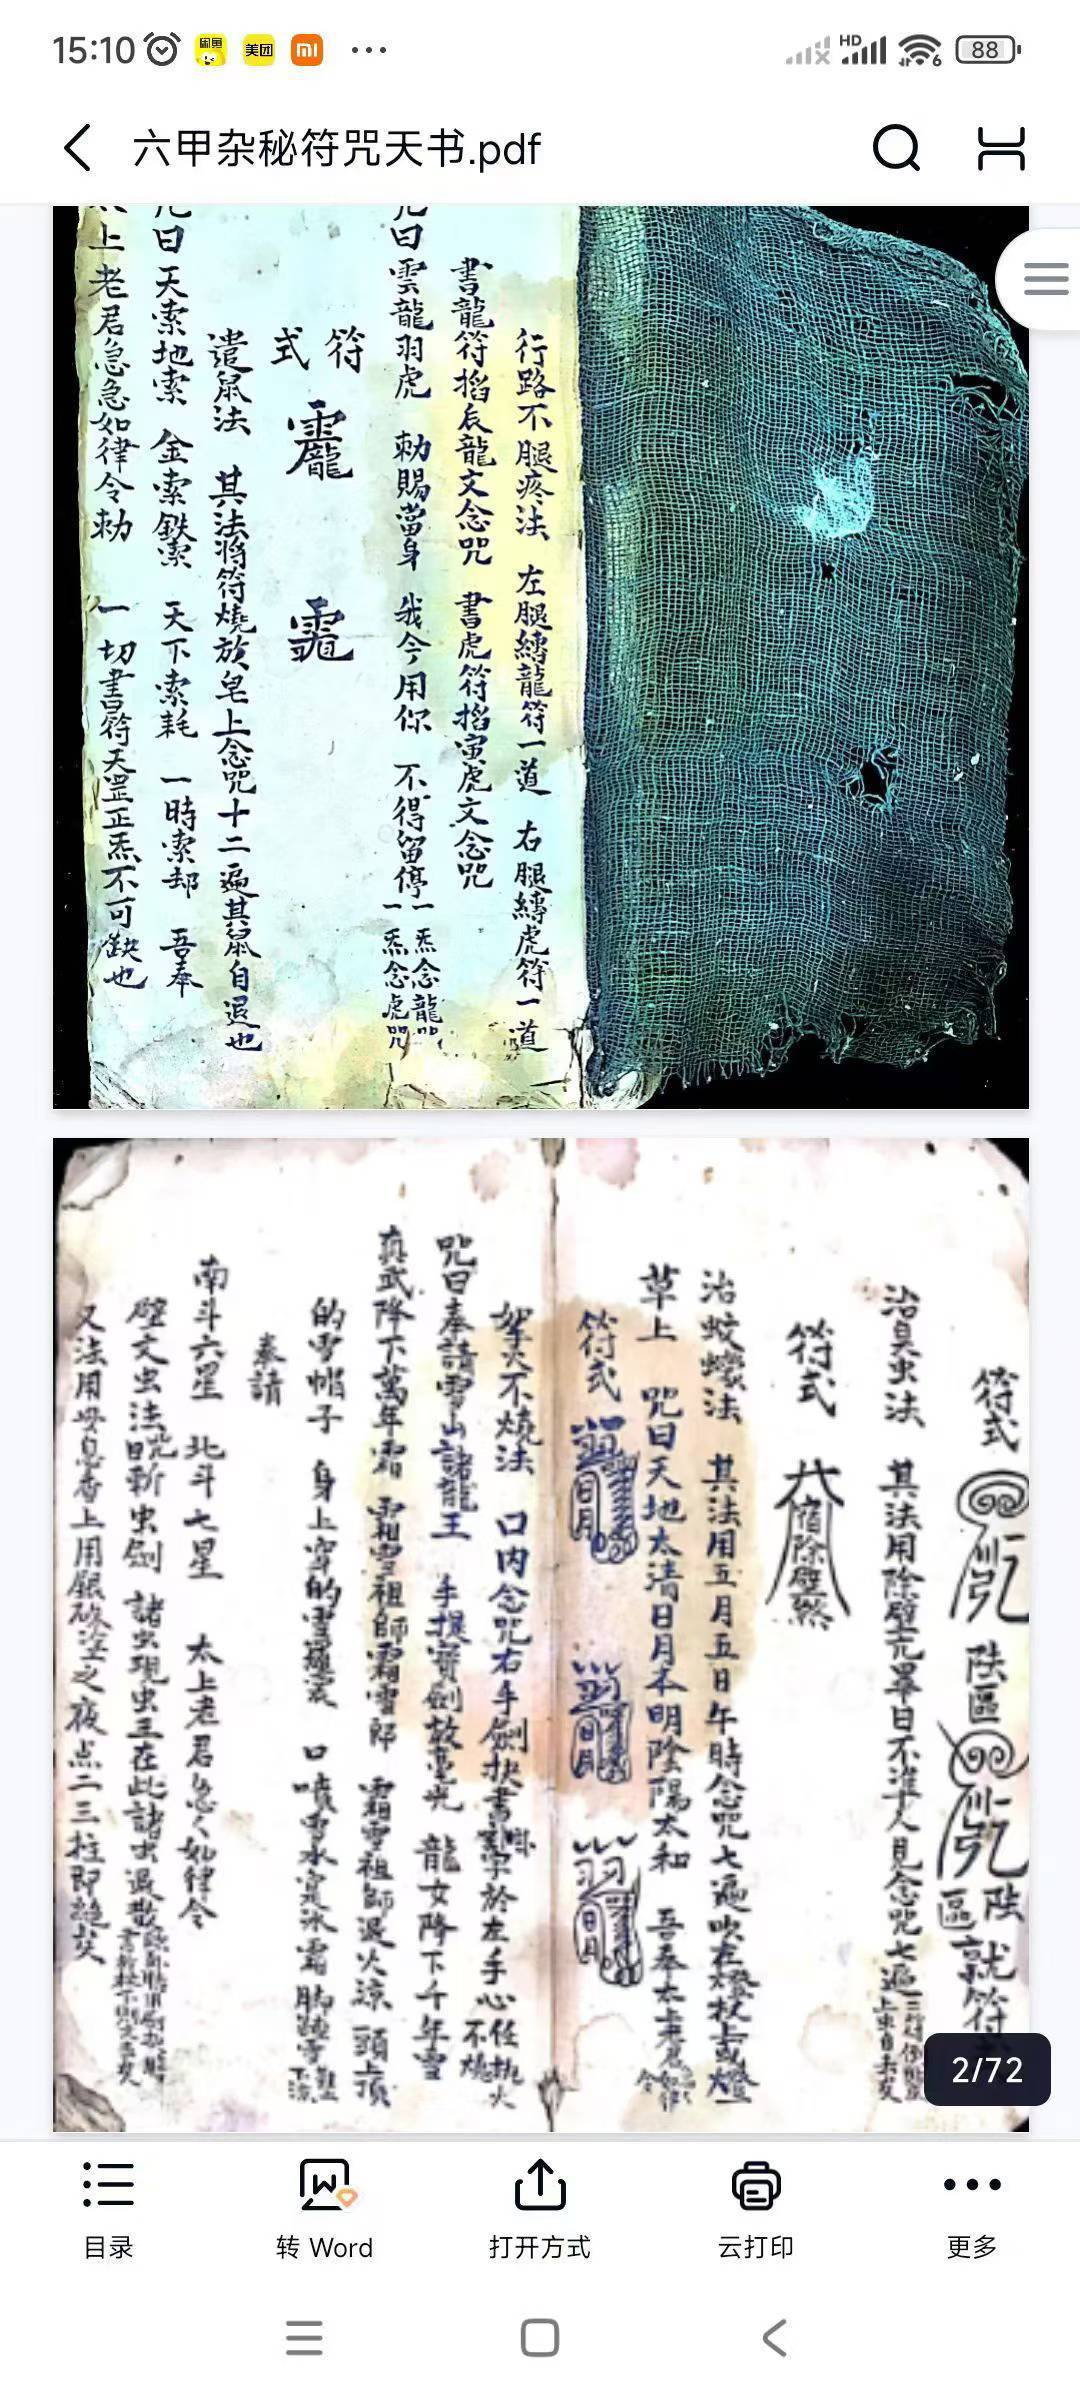 15:10
闲鱼
美团
HD
6
88
六甲杂秘符咒天书.pdf
行路不腿疼法 左腿縳龍符一道 右腿縳虎符一道
書龍符掐辰龍文念咒 書虎符掐寅虎文念咒
曰雲龍羽虎 勅賜當身 我今用你 不得留停
一炁念龍咒
一炁念虎咒
符式
遣鼠法 其法將符燒放皂上念咒十二遍其鼠自退也
曰天索地索 金索鉄索 天下索耗 一時索却 吾奉
上老君急急如律令勅 一切書符天罡正炁不可缺也
符式
治臭虫法 其法用除壁亢畢日不準人見念咒七遍
符式
治蚊蠓法 其法用五月五日午時念咒七遍吹在燈杖上或燈
草上 咒曰天地太清日月本明陰陽太和 吾奉太上老君
符式
口內念咒右手劍抉書 字於左手心任抓火不燒
咒曰奉請雪山諸龍王 手提寶劍放毫光 龍女降下千年雪
真武降下萬年霜 霜雪祖師霜雪郎 霜雪祖師退火凉 頭上頂
的雪帽子 身上穿的雪 口噴雪水寒氷霜
奉請
南斗六星 北斗七星 太上老君急急如律令
壁文虫法咒曰斬虫劍 諸虫現虫王在此諸虫退散
又法用安息香上用銀硃 之夜点二三柱即
2/72
目录
转 Word
打开方式
云打印
更多